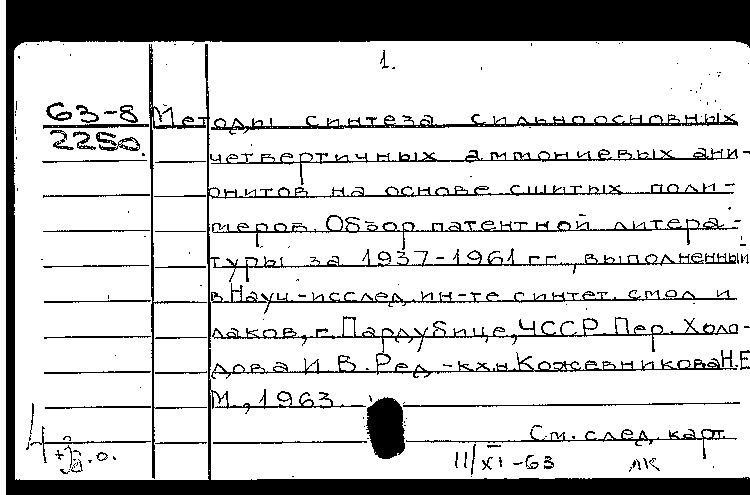 1.
63-8 Методы синтеза сильноосновных
2250 четвертичных аммониевых ани-
онитов на основе сшитых поли-
меров. Обзор патентной литера-
туры за 1937-1961 гг., выполненный
в Науч.-исслед. ин-те синтет. смол и
лаков, г. Пардубице, ЧССР. Пер. Холо-
дова И. В. Ред.-к.х.н. Кожевникова Н.Е.
М., 1963.
См. след. карт.
11/XI-63